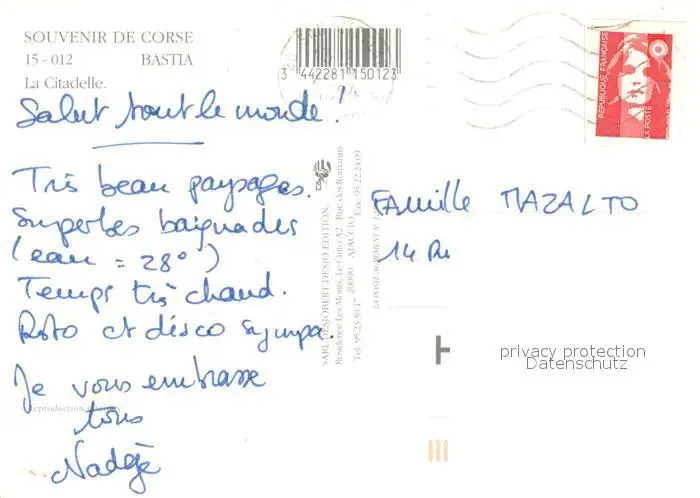 SOUVENIR DE CORSE
15-012 BASTIA
La Citadelle.
3 442281 150123
RÉPUBLIQUE FRANÇAISE
LA POSTE
Salut tout le monde !
Très beau paysages.
Superbes baignades
(eau = 28°)
Temps très chaud.
Resto et disco sympa.
Je vous embrasse
tous
Nadège
SARL DESJOBERT DESJO EDITION,
Résidence Les Monts, Le Girio A2 - Rue des Romarins
Tel. 95.23.30.17 20090 AJACCIO Fax: 95.22.26.09
LA POSTE AGREMENT N°
FAMille MAZALTO
14 Ru
H
Reproduction
privacy protection
Datenschutz